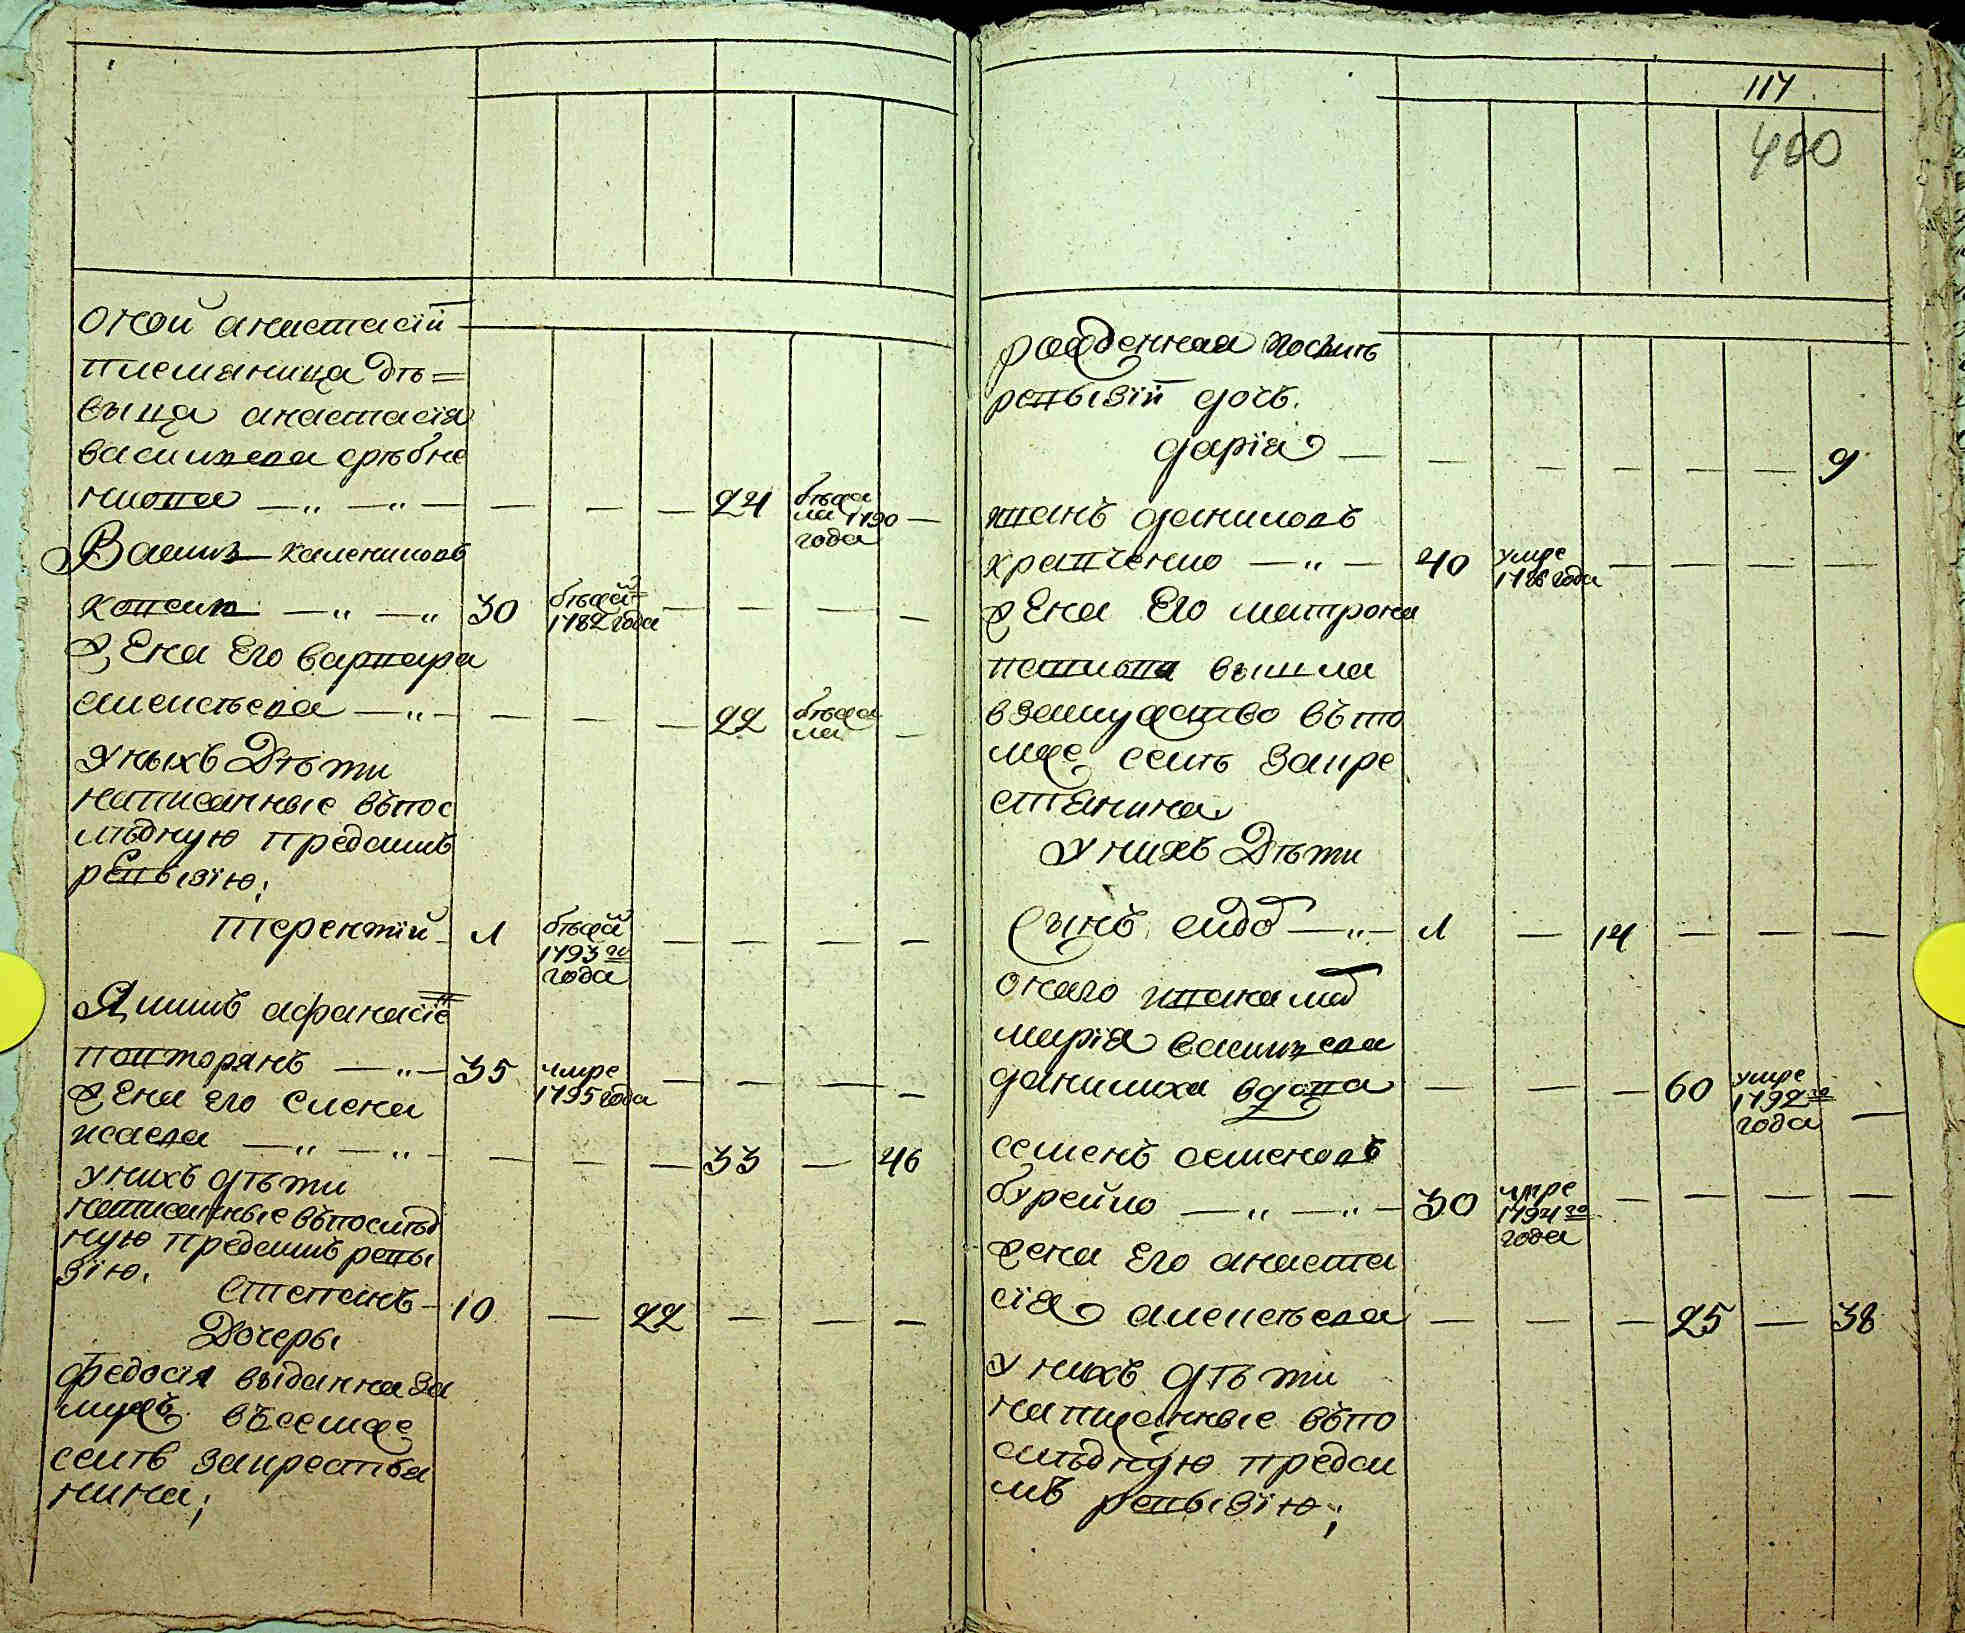 оной анастасіи
племяница дѣ=
выца анастасія
василева срѣбне
кова — „ — „ — — — — 24 бѣжа
ла 1790 —
года
Василь калениковъ
ковал — „ — „ 30 бѣжай
1782 года — — — — —
жена Его варвара
алексѣева — „ — — — — 22 бѣжа
ла —
У ныхъ Дѣти
написанные въпос
лѣдную предъ симъ
ревызію;
терентій — 1 бѣжай
1793 го
года — — — — —
Якимъ афанасіе
повторянъ — „ — 35 умре
1795 года — — — — —
жена его елена
исаева — „ — „ — — — — 33 — 46
у нихъ дѣти
написанные въпослѣд
ную предъ симъ ревы
зію.
Степанъ — 10 — 22 — — —
Дочеры
федосія выданна за
мужъ въсемже
селѣ закрестья
нина;
117
400
рожденная послѣ
ревызіи дочь.
дарія — — — — — — 9
иванъ даниловъ
храпченко — „ — 40 умре
1786 года — — — — —
жена Его матрона
павлова вышла
взамужство въто
мже селѣ закре
стянина
У нихъ Дѣти
Сынъ сидоръ — „ — 1 — 14 — — —
онаго ивана мать
марія василева
данилиха вдова — — — 60 умре
1792 го
года —
семенъ семеновъ
бурейко — „ — „ — 30 умре
1794 го
года — — — —
жена Его анаста
сія алексѣева — — — 25 — 38
У нихъ дѣти
написанные въпо
слѣдную предъ си
мъ ревызію;